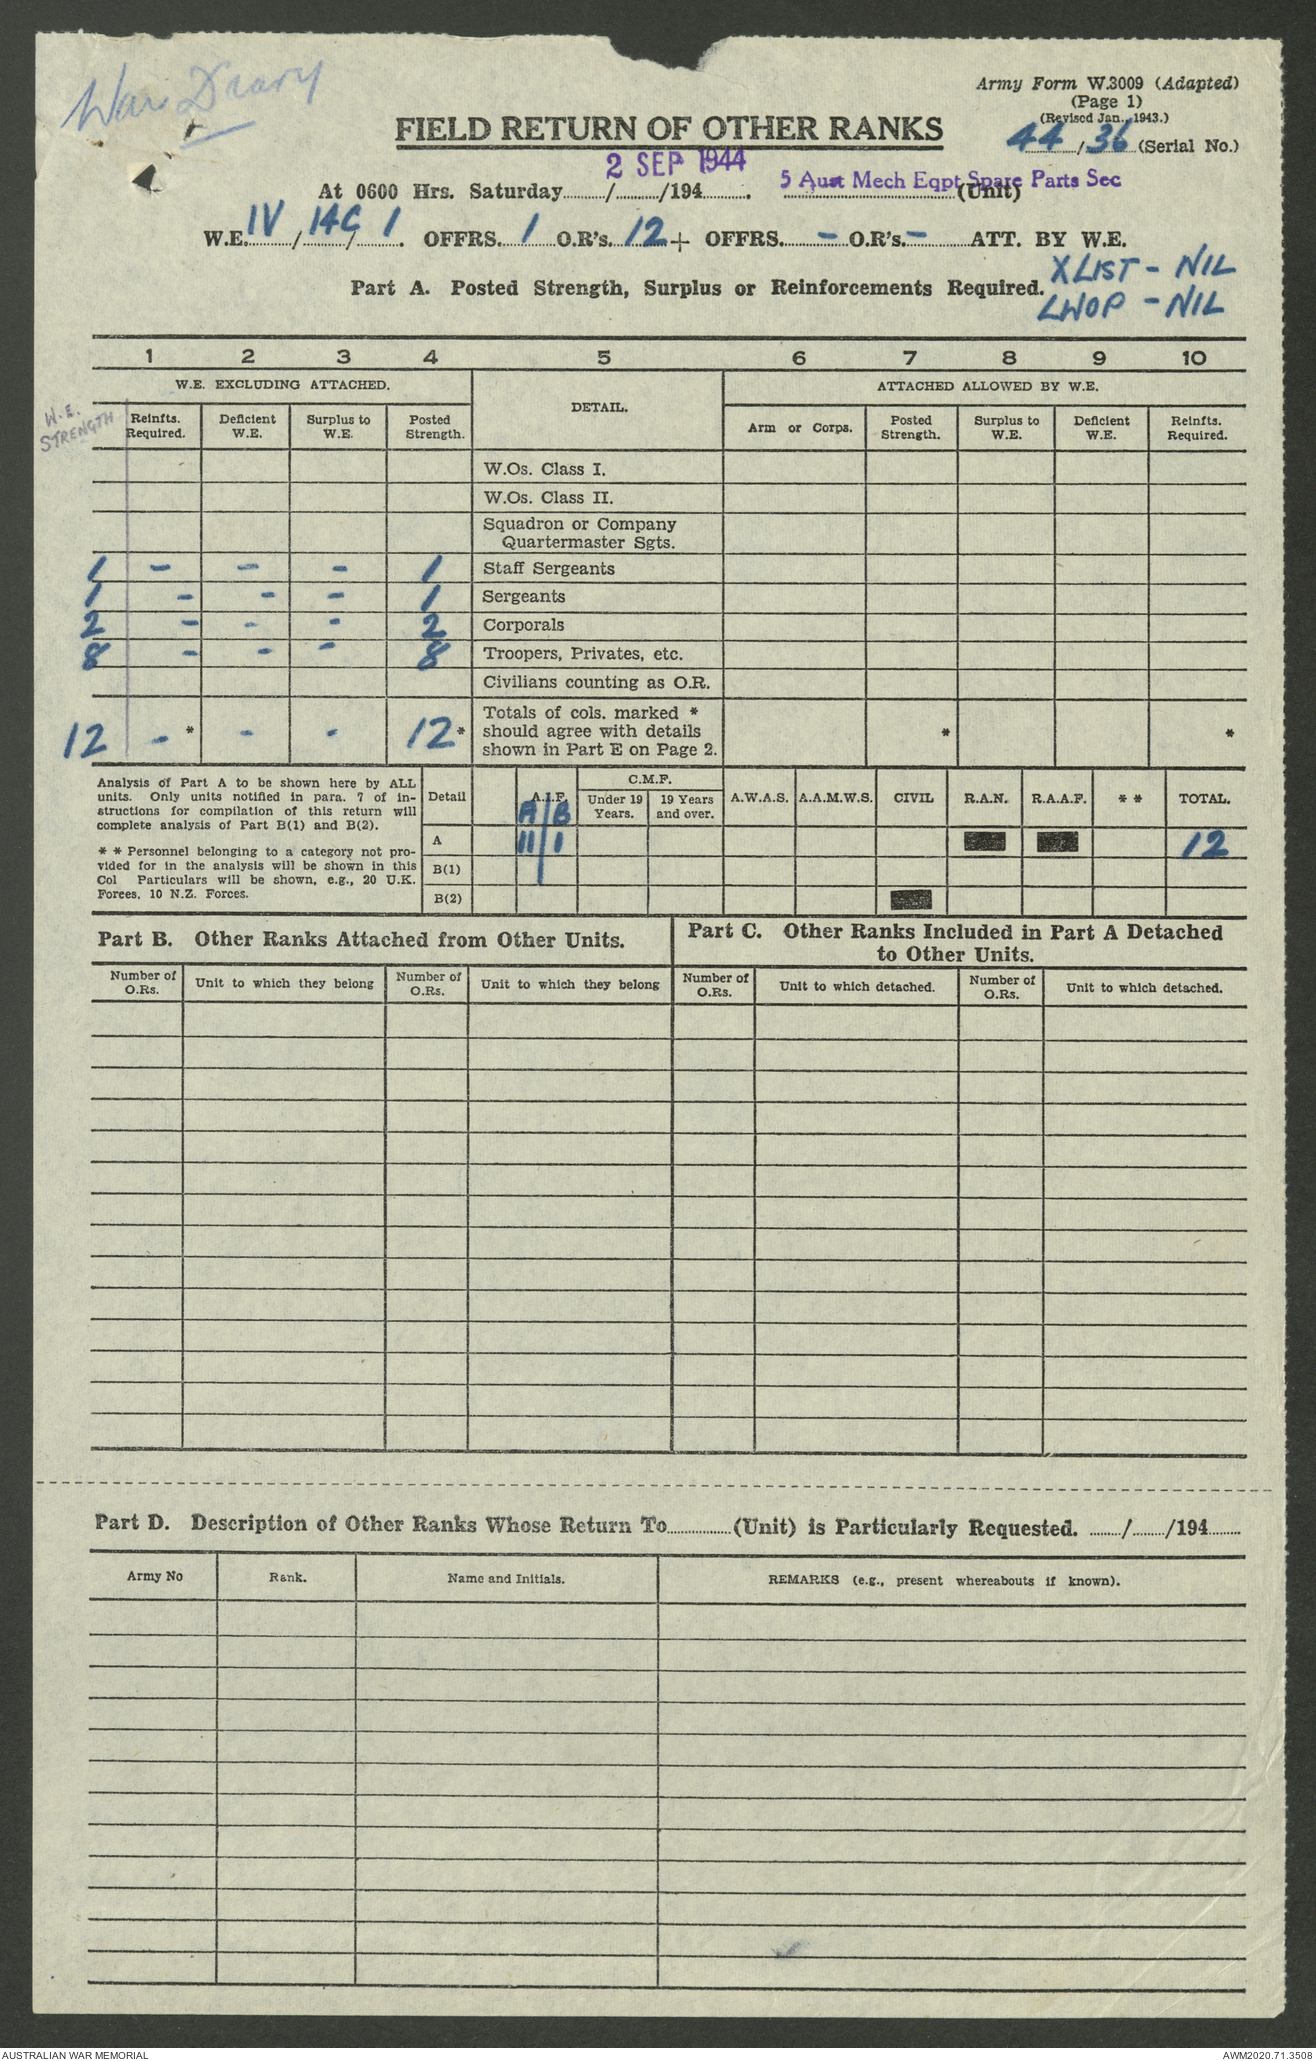 War Diary
Army Form W.3009 (Adapted)
(Page 1)
(Revised Jan., 1943.)
44/36 (Serial No.)
FIELD RETURN OF OTHER RANKS
2 SEP 1944
At 0600 Hrs. Saturday........../........../194.......... 5 Aust Mech Eqpt Spare Parts Sec (Unit)
W.E. IV/14C/1. OFFRS. 1 O.R's. 12 + OFFRS. - O.R's. - ATT. BY W.E.
X LIST - NIL
Part A. Posted Strength, Surplus or Reinforcements Required.
LWOP - NIL
1 2 3 4 5 6 7 8 9 10
W.E. EXCLUDING ATTACHED. DETAIL. ATTACHED ALLOWED BY W.E.
W.E. STRENGTH
Reinfts. Required. Deficient W.E. Surplus to W.E. Posted Strength. Arm or Corps. Posted Strength. Surplus to W.E. Deficient W.E. Reinfts. Required.
W.Os. Class I.
W.Os. Class II.
Squadron or Company
Quartermaster Sgts.
1 - - - 1 Staff Sergeants
1 - - - 1 Sergeants
2 - - - 2 Corporals
8 - - - 8 Troopers, Privates, etc.
Civilians counting as O.R.
12 - * - - 12 * Totals of cols. marked * * *
should agree with details
shown in Part E on Page 2.
Analysis of Part A to be shown here by ALL
units. Only units notified in para. 7 of in-
structions for compilation of this return will
complete analysis of Part B(1) and B(2).
* * Personnel belonging to a category not pro-
vided for in the analysis will be shown in this
Col Particulars will be shown, e.g., 20 U.K.
Forces, 10 N.Z. Forces.
Detail A.I.F. C.M.F. A.W.A.S. A.A.M.W.S. CIVIL R.A.N. R.A.A.F. * * TOTAL.
Under 19 Years. 19 Years and over.
A/B
A 11/1 12
B(1)
B(2)
Part B. Other Ranks Attached from Other Units.
Part C. Other Ranks Included in Part A Detached
to Other Units.
Number of O.Rs. Unit to which they belong Number of O.Rs. Unit to which they belong Number of O.Rs. Unit to which detached. Number of O.Rs. Unit to which detached.
Part D. Description of Other Ranks Whose Return To..............(Unit) is Particularly Requested. ......./......./194.......
Army No Rank. Name and Initials. REMARKS (e.g., present whereabouts if known).
AUSTRALIAN WAR MEMORIAL AWM2020.71.3508